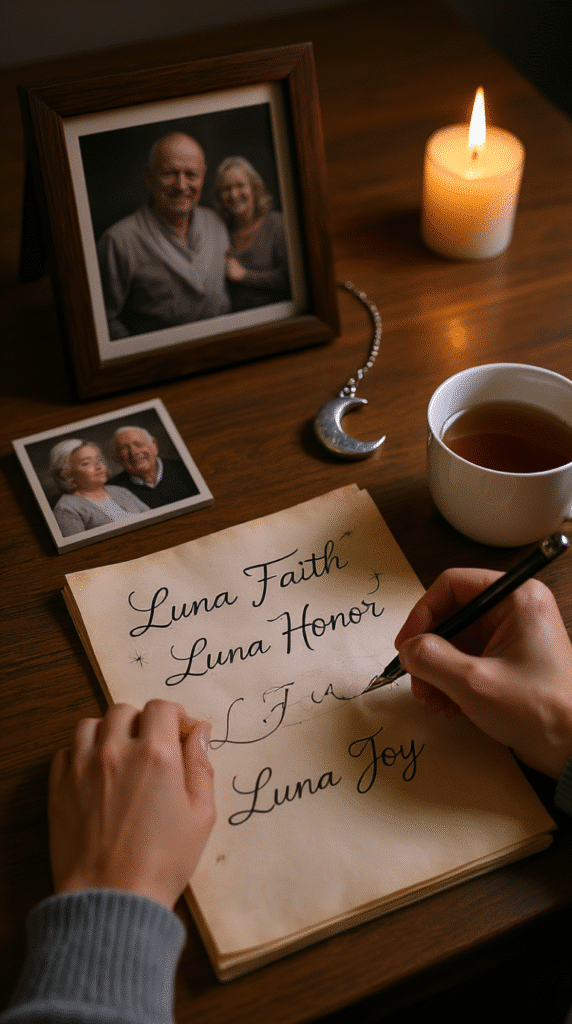 Luna Faith
Luna Honor
Luna Joy